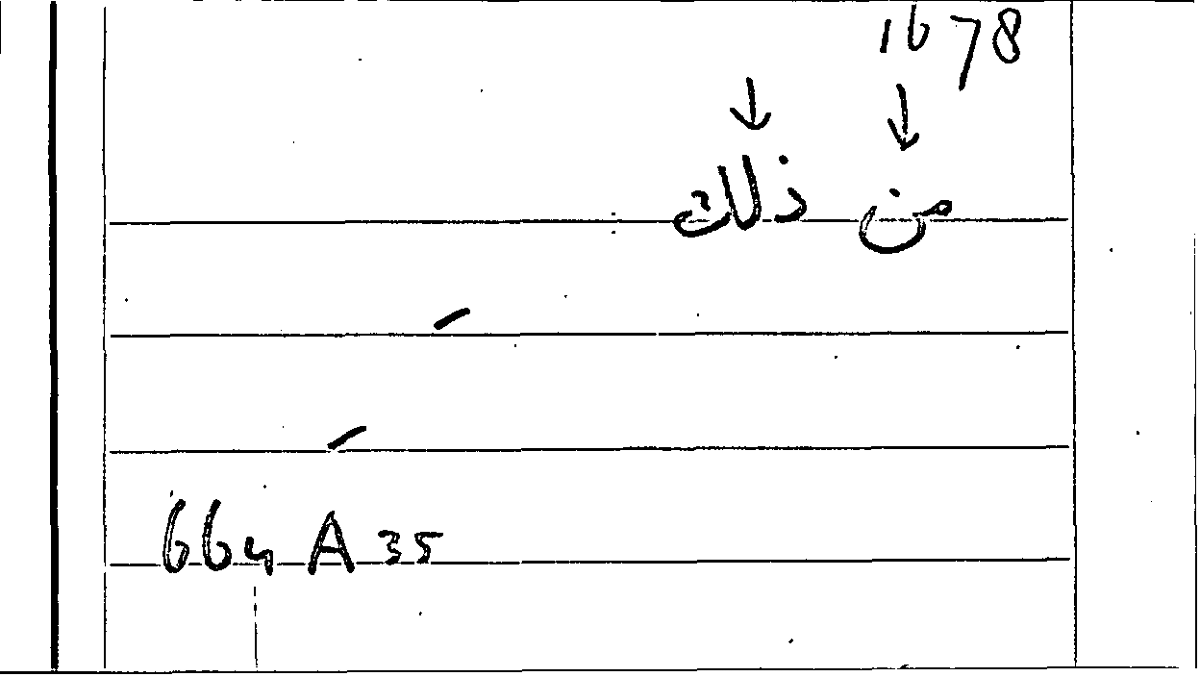 1678
↓ ↓
من ذلك
664 A 35